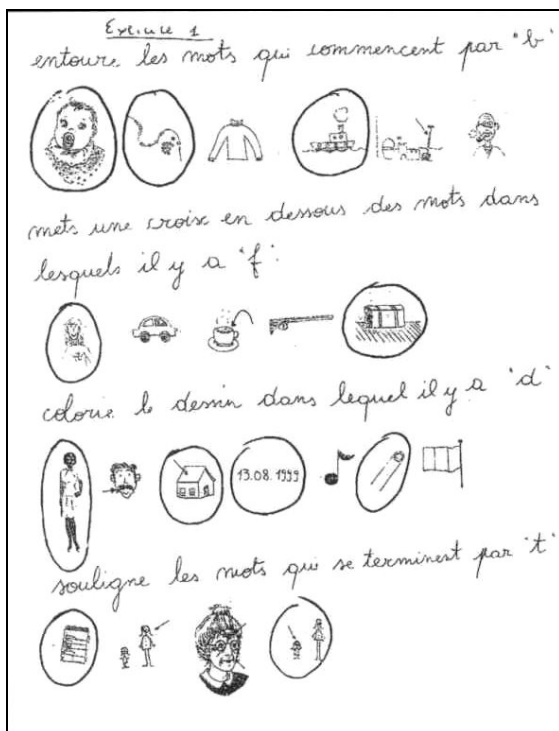 Exercice 1
entoure les mots qui commencent par "b"
mets une croix en dessous des mots dans
lesquels il y a "f".
colorie le dessin dans lequel il y a "d"
13.08.1999
souligne les mots qui se terminent par "t"